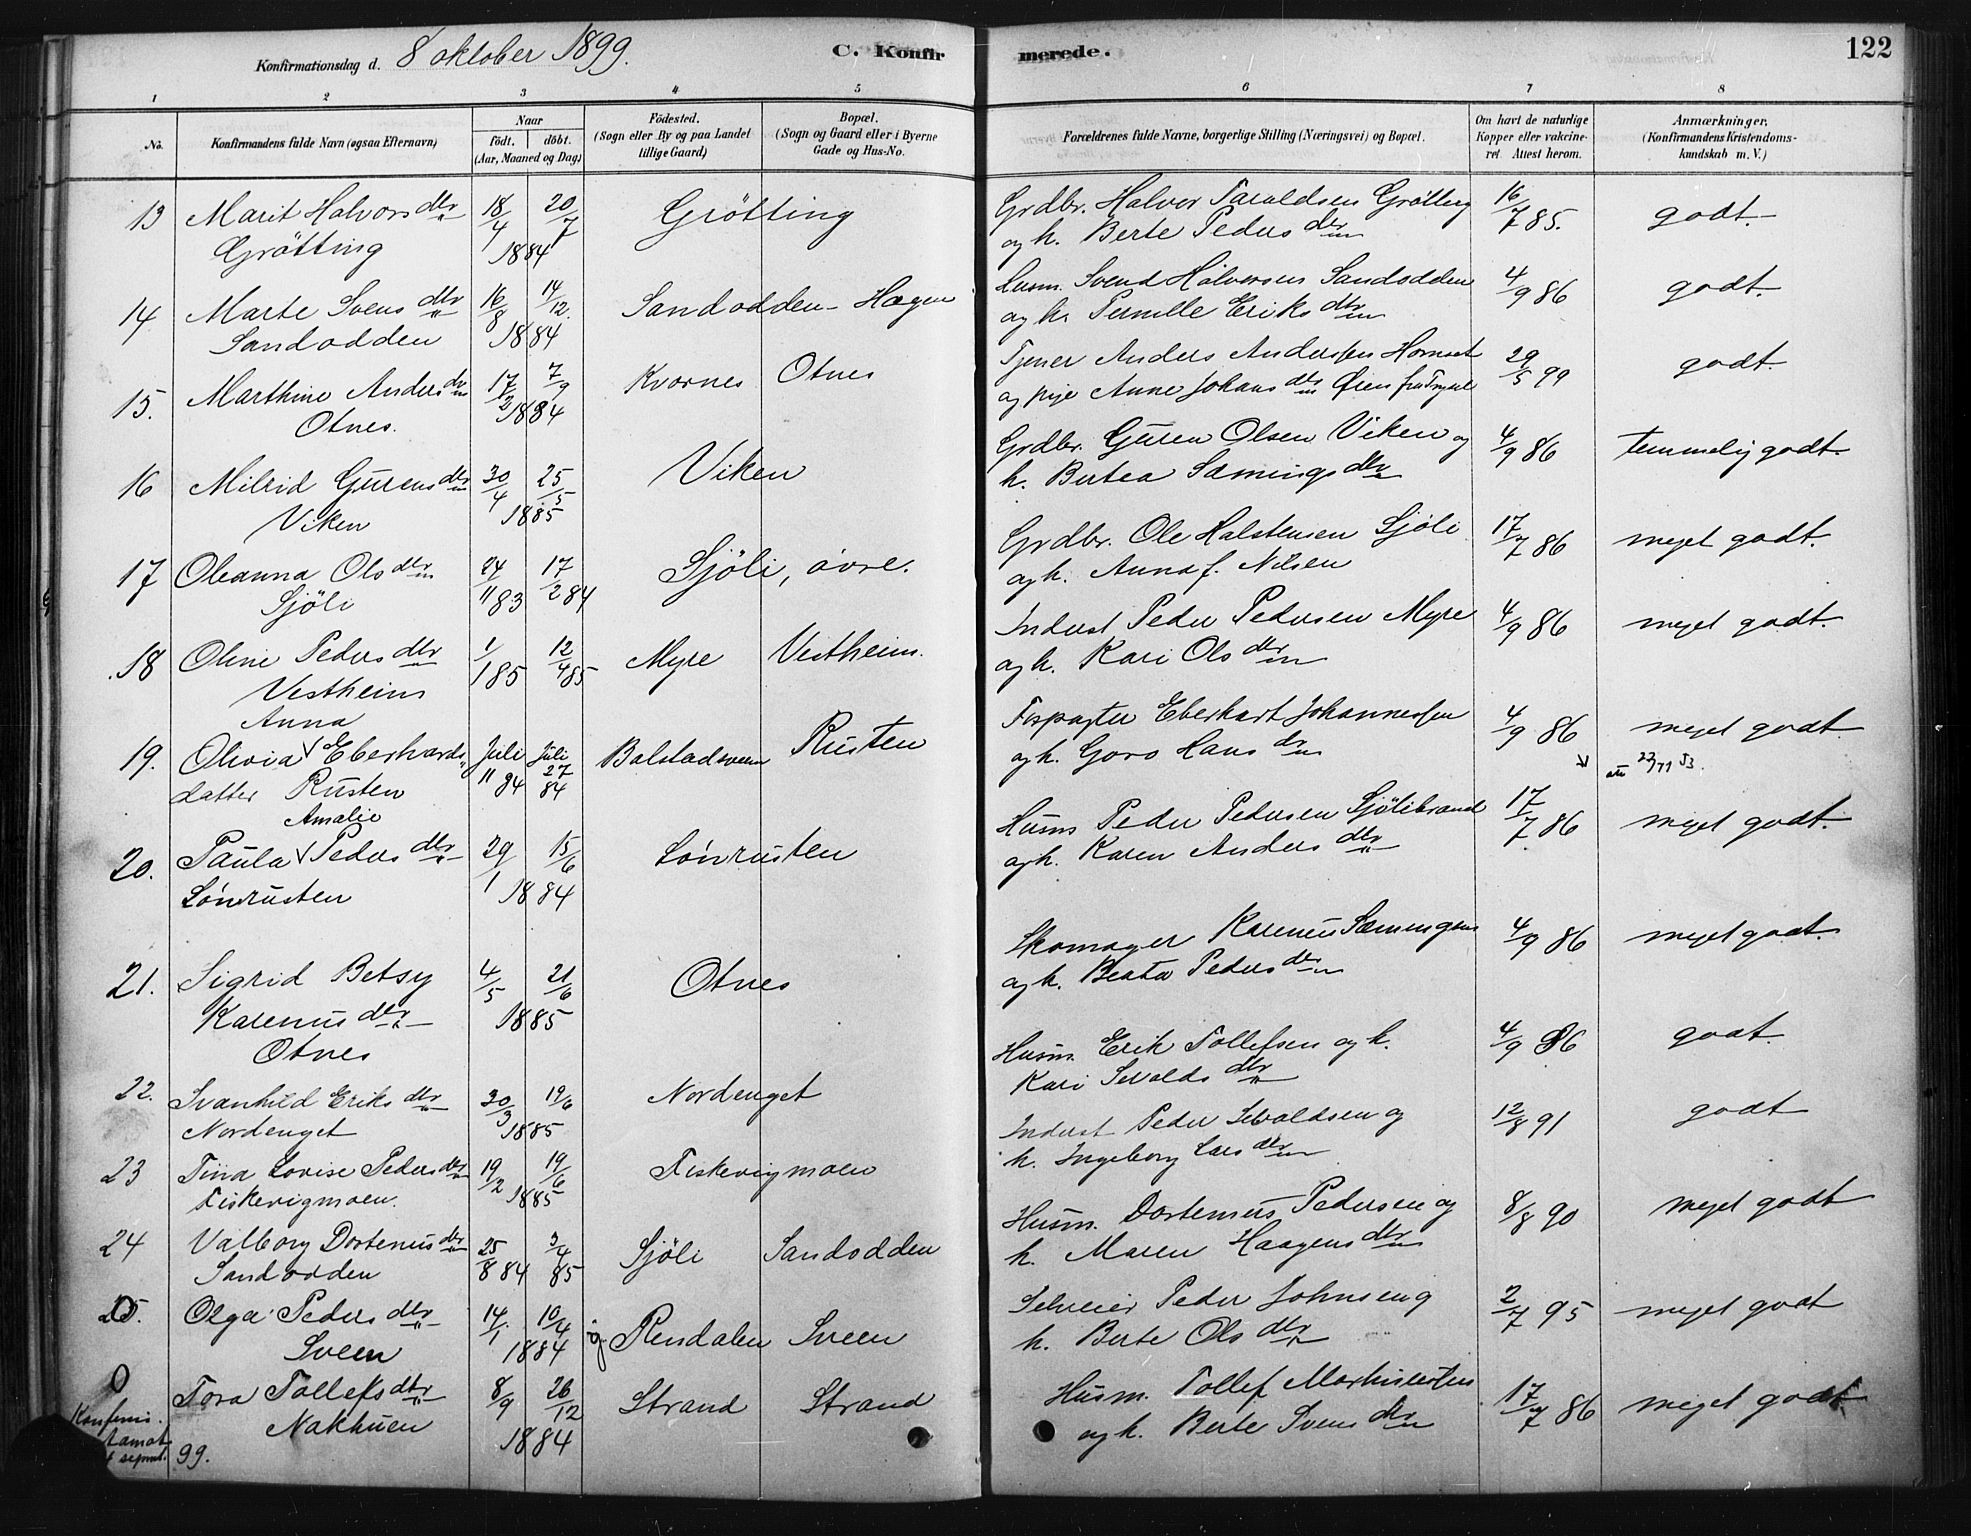 Konfirmationsdag d. 8 oktober 1899.
C. Konfir
merede.
122
1 2 3 4 5 6 7 8
No.
Konfirmandens fulde Navn (ogsaa Efternavn)
Naar
födt. döbt.
(Aar, Maaned og Dag)
Födested.
(Sogn eller By og paa Landet
tillige Gaard)
Bopæl.
(Sogn og Gaard eller i Byerne
Gade og Hus-No.
Forældrenes fulde Navne, borgerlige Stilling (Næringsvei) og Bopæl.
Om havt de naturlige
Kopper eller vakcine-
ret Attest herom.
Anmærkninger.
(Konfirmandens Kristendoms-
kundskab m. V.)
13 Marit Halvorsdtr 18/4 20/7 Grötting Grdbr. Halvor Taraldsen Grötting 16/7 85. godt.
Grötting 1884 og h. Berte Pedersdtr
14 Marte Svensdtr 16/8 14/12. Sandodden - Hagen Husm. Svend Halvorsen Sandodden 4/9 86 godt.
Sandodden 1884 og h. Pernille Eriksdtr
15. Marthine Andersdtr 17/2 7/9 Kvornes Otnes Tjener Anders Anderssen Hornset 29/5 99 godt.
Otnes. 1884 og pige Anne Johansdtr Öien fra Trysil
16 Milrid Gurensdtr 30/4 25/5 Viken Grdbr. Guren Olsen Viken og 4/9 86 temmelig godt.
Viken 1885 h. Bertea Sæmingsdtr
17 Oleanna Olsdtr 24/11 83 17/2 84 Sjöli, övre. Grdbr. Ole Halstensen Sjöli 17/7 86 meget godt.
Sjöli og h. Anna f. Nilsen
18 Oline Pedersdtr 1/1 85 12/4 85 Myre Vestheim. Inderst Peder Pedersen Myre 4/9 86 meget godt.
Vestheim og h. Kari Olsdtr
Anna
19. Olivia √ Eberhards Juli Juli Balstadsveen Rusten Forpagter Eberhart Johannessen 4/9 86 meget godt.
datter Rusten 11 84 27 84 og h. Goro Hansdtr att 23/11 53.
Amalie
20. Paula √ Pedersdtr 29/1 15/6 Lönrusten Husm Peder Pedersen Sjölibrænd 17/7 86 meget godt.
Lönrusten 1884 og h. Karen Andersdtr
21. Sigrid Betsy 4/5 21/6 Otnes Skomager Karenus Sæmingsen 4/9 86 meget godt.
Karenusdtr 1885 og h. Beata Pedersdtr
Otnes
22. Svanhild Eriksdtr 30/3 19/6 Nordenget Husm. Erik Tollefsen og h. 4/9 86 godt.
Nordenget 1885 Kari Sevaldsdtr
23 Tina Lovise Pedersdtr 19/2 19/6 Fiskevigmoen Inderst Peder Sevaldsen og 12/8 91 godt
Fiskevigmoen. 1885 h. Ingeborg Larsdtr
24 Valborg Dortenusdtr 25/8 84 3/4 85 Sjöli Sandodden Husm. Dortenus Pedersen og 8/8 90 meget godt
Sandodden h. Maren Haagensdtr
25. Olga Pedersdtr 14/1 10/4 Rendalen Sveen Selveier Peder Johnsen og 2/7 95 meget godt
Sveen 1884 h. Berte Olsdtr
0 Tora Tollefsdtr 8/9 26/12 Strand Strand Husm. Tollef Marhinersen 17/7 86 meget godt
Nakhuen 1884 og h. Berte Svensdtr
Konfirm.
sepmt. 99.